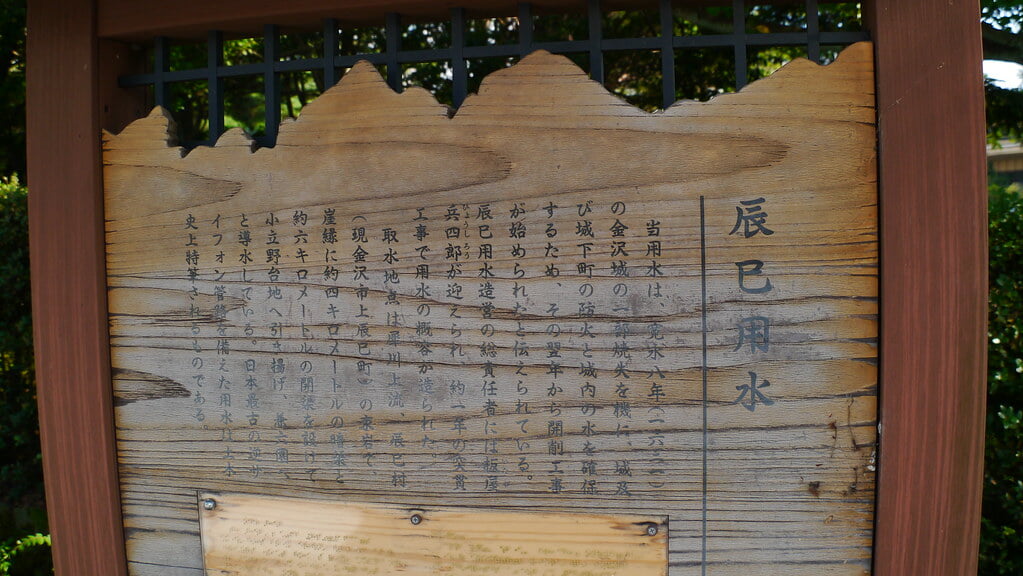 辰巳用水
当用水は、寛永八年（一六三一）
の金沢城の一部焼失を機に、城及
び城下町の防火と城内の水を確保
するため、その翌年から開削工事
が始められたと伝えられている。
辰巳用水造営の総責任者には板屋
兵四郎が迎えられ、約一年の突貫
ひょうしろう
工事で用水の概容が造られた。
取水地点は犀川上流、辰巳村
（現金沢市上辰巳町）の東岩で、
崖縁に約四キロメートルの暗渠と
約六キロメートルの開渠を設けて
小立野台地へ引き揚げ、兼六園へ
と導水している。日本最古の逆サ
イフォン管路を備えた用水は土木
史上特筆されるものである。